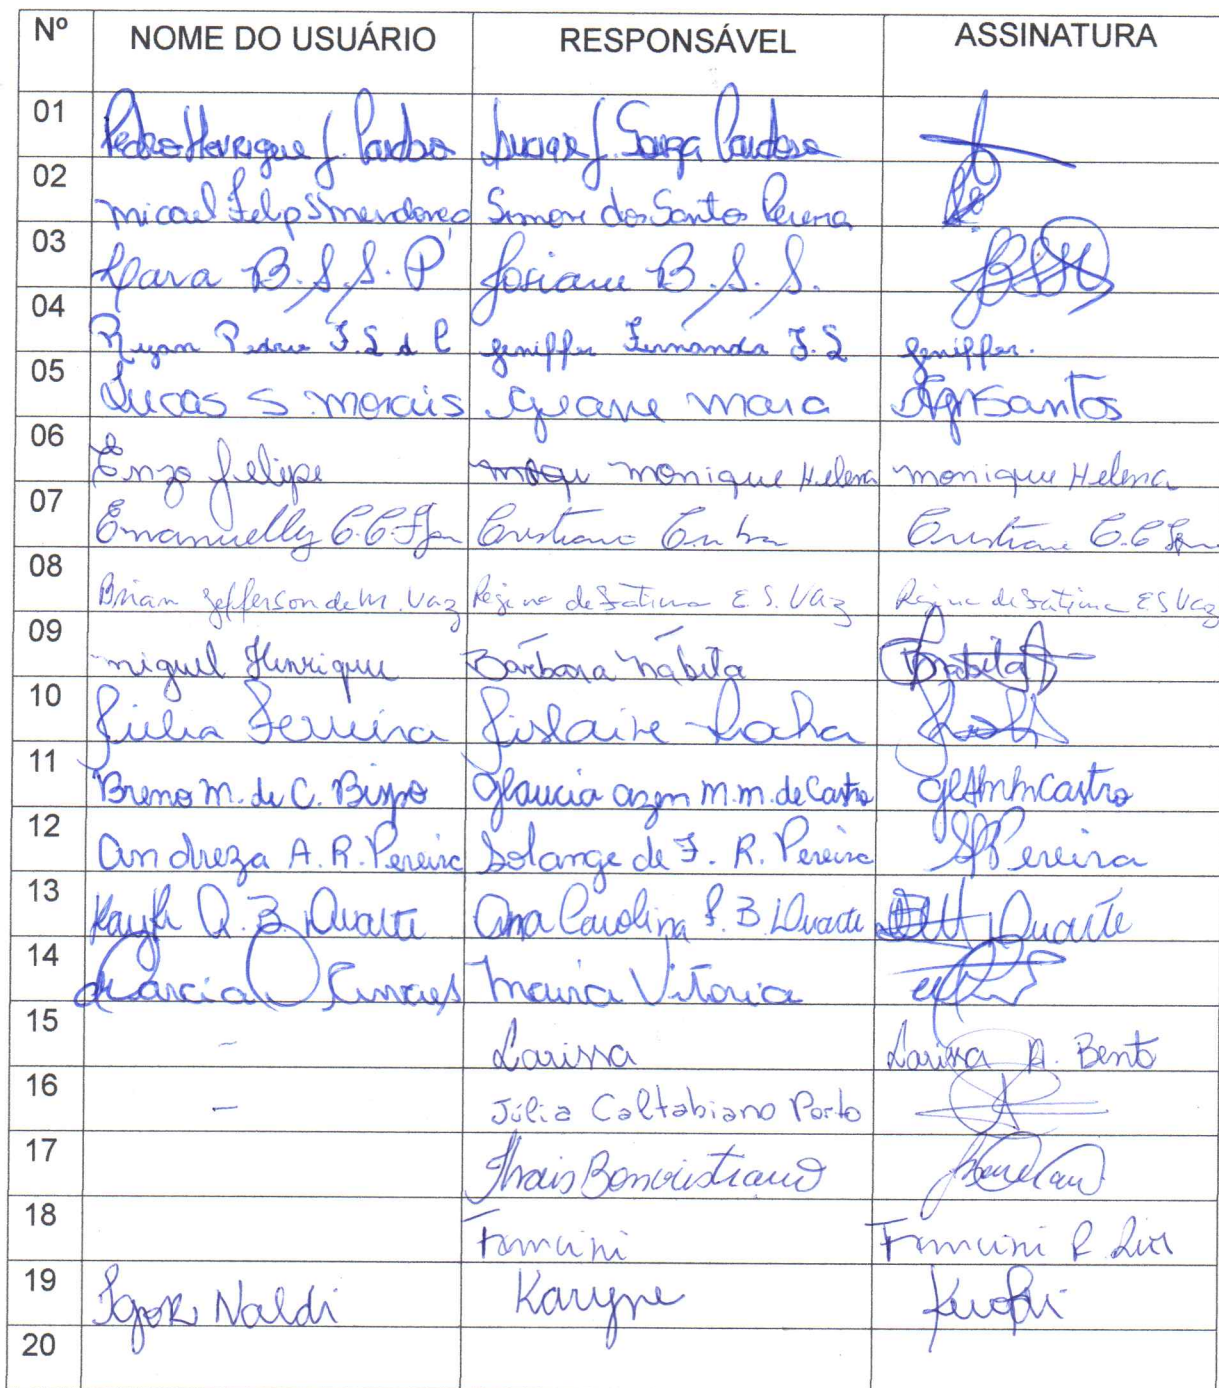 Nº NOME DO USUÁRIO RESPONSÁVEL ASSINATURA
01 Pedro Henrique J. Cardoso Luciane J. Souza Cardoso
02 Micael Felip S mendonça Simone dos Santos Pereira
03 Lara B. S. S. P Josiane B. S. S.
04 Ryan Pedro F. S d C Jeniffer Fernanda F. S Jeniffer.
05 Lucas S morais Geane mara Santos
06 Enzo felipe monique Helena monique Helena
07 Emanuelly C. C Cristiane Cristiane C. C
08 Brian Jefferson de M. Vaz Regina de Fatima E S. Vaz Regina de Fatima E S Vaz
09 miguel Henrique Bárbara Nábila Nabila
10 Júlia Ferreira Gislaine Rocha
11 Breno M. de C. Bispo Glaucia M. M. de Castro Castro
12 Andreza A. R. Pereira Solange de F. R. Pereira Pereira
13 B. Duarte Ana Carolina P. B. Duarte Duarte
14 Maria Vitoria
15 - Larissa Larissa A. Bento
16 - Júlia Caltabiano Porto
17 Thais
18 Francini Francini R
19 Igor Naldi Karyne
20